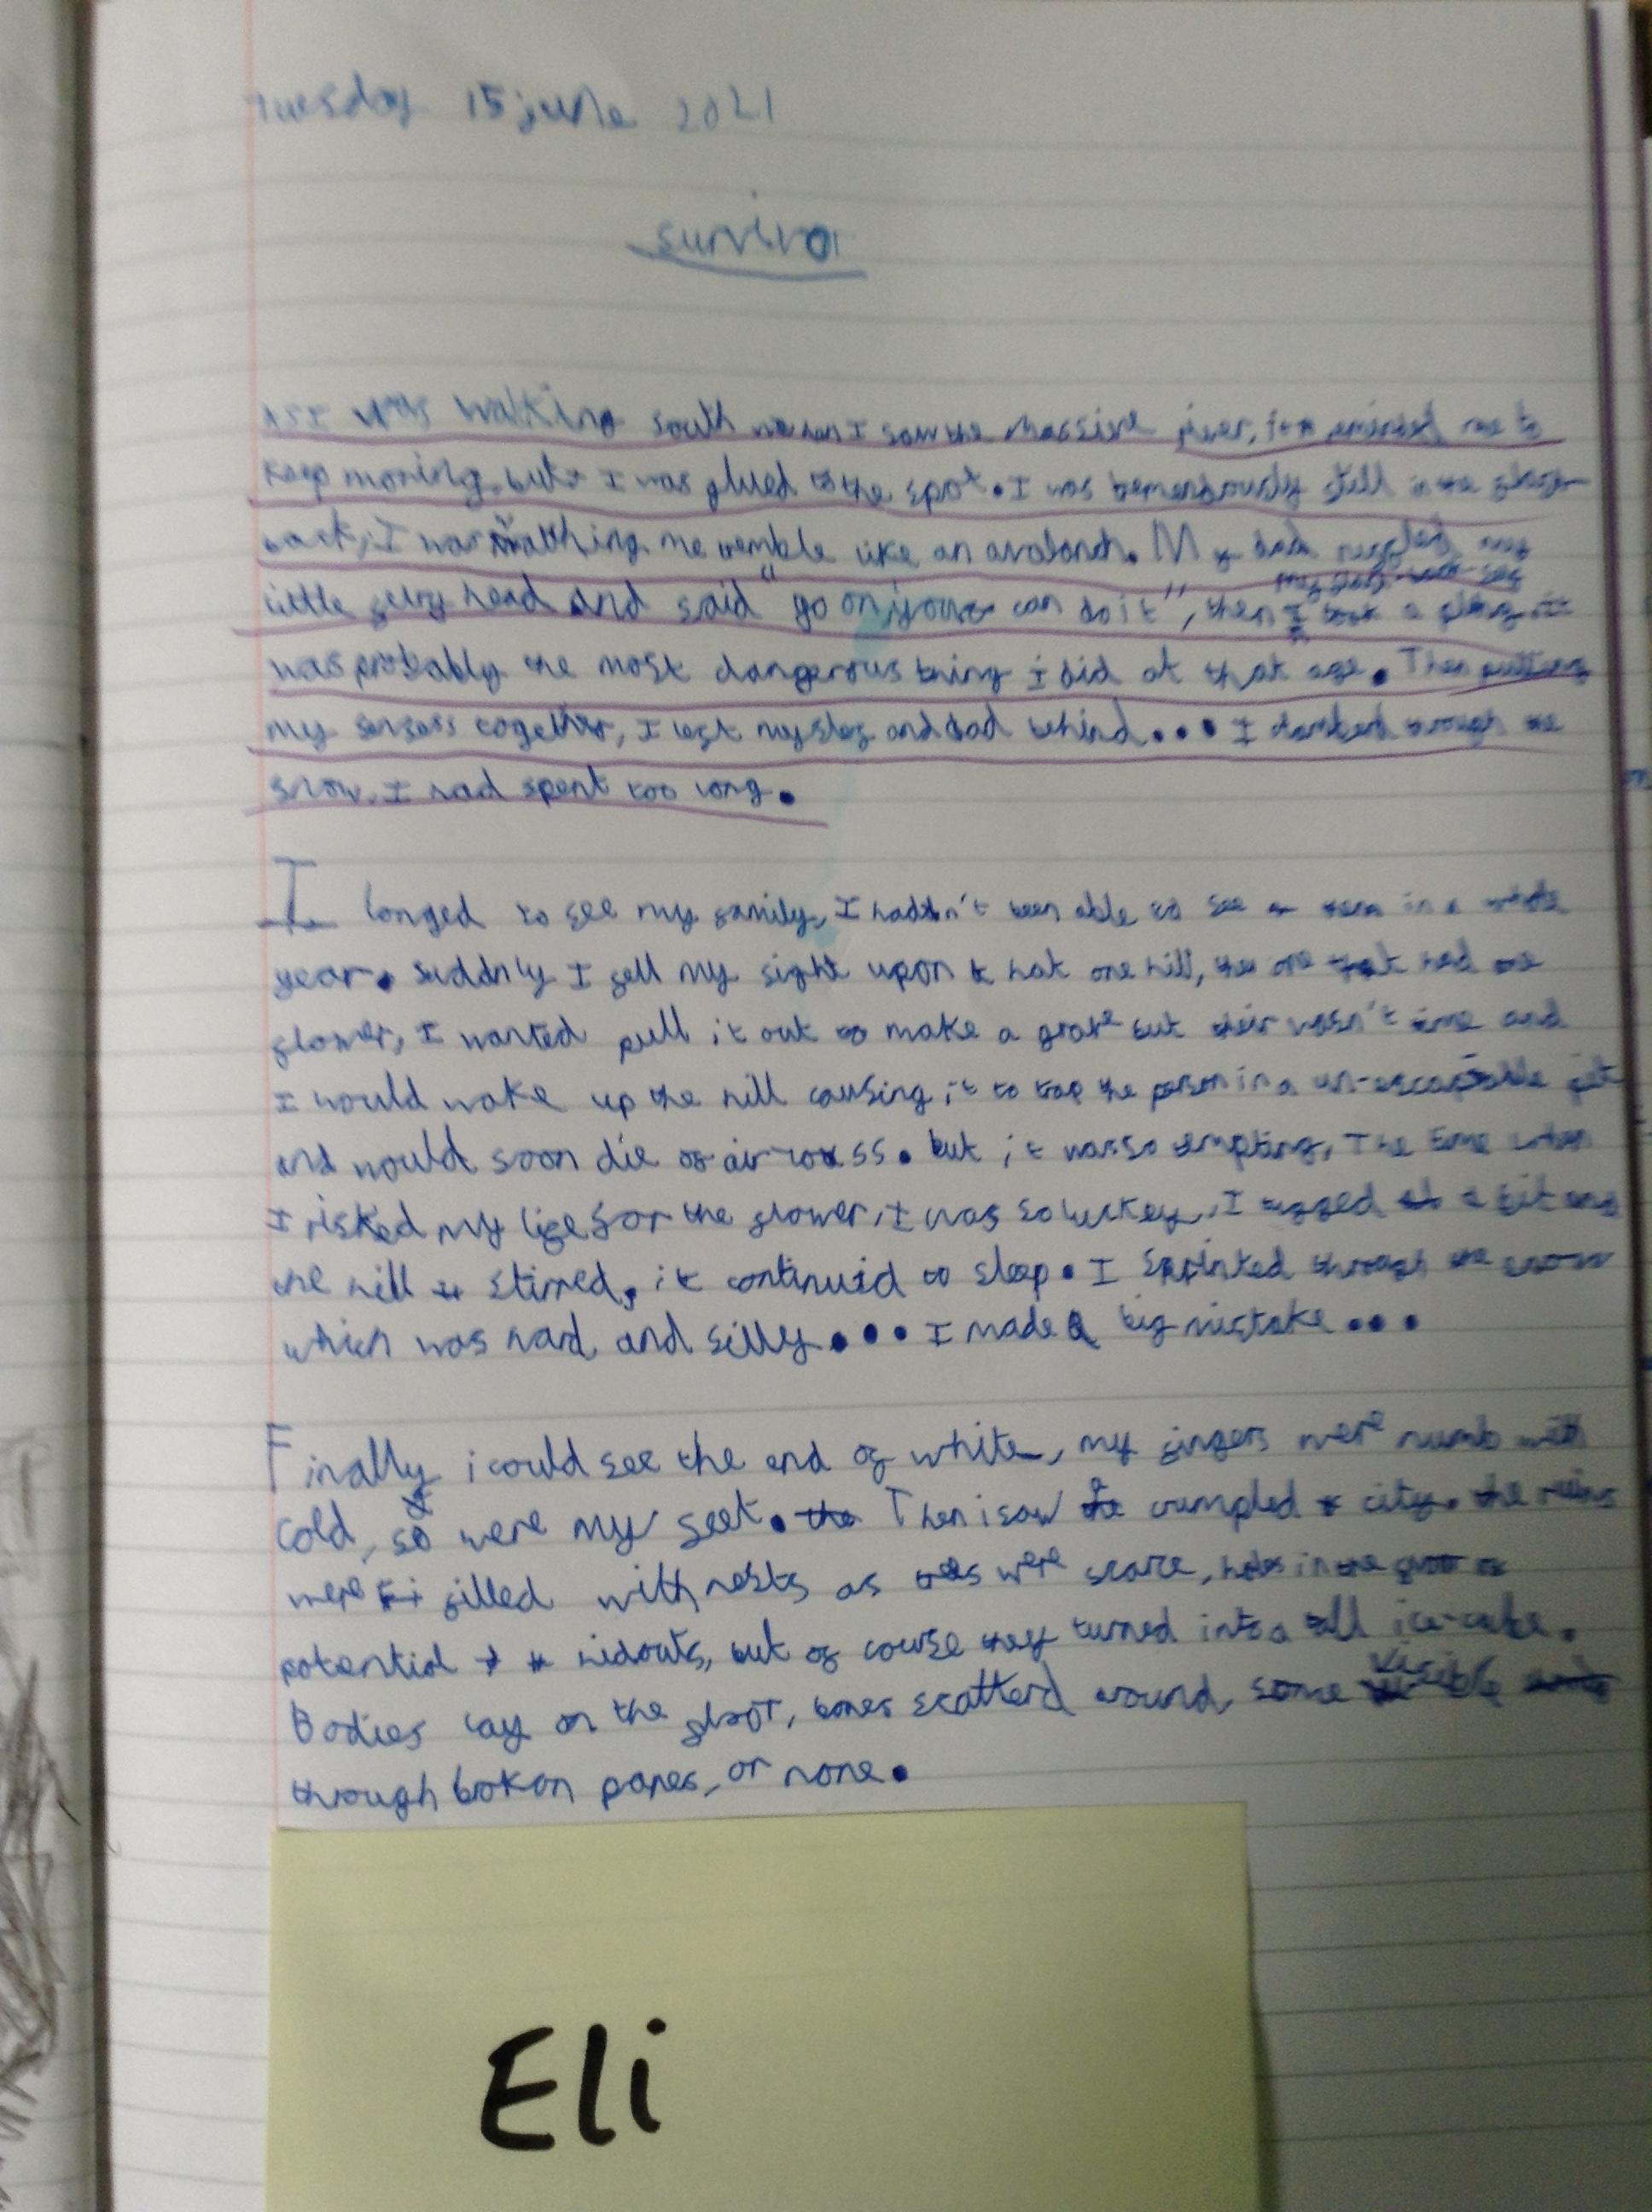 tuesday 15 june 2021
survivor
As I was walking south when I saw the massive river, it me to
keep moving, but I was glued to the spot. I was tremendously still in the
back, I was me tremble like an avalanch. My dad my
little furry head and said "go on, you can do it", then I took a it
was probably the most dangerous thing i did at that age. Then putting
my sensess together, I left my and dad behind... I through the
snow. I had spent too long.
I longed to see my family, I hadn't been able to see them in a whole
year. suddnly I fell my sight upon that one hill, the one that had one
flower, I wanted pull it out to make a but their wasn't time and
I would wake up the hill causing it to trap the person in a un-escapable pit
and would soon die of air loss. but it was so tempting, The time when
I risked my life for the flower, I was so luckey, I tugged a bit and
the hill stirred, it continuid to sleep. I sprinted through the snow
which was hard and silly... I made a big mistake...
Finally i could see the end of white, my fingers were numb with
cold, so were my feet. the Then i saw crumpled city. the ruins
were filled with nests as trees were scarce, holes in the
potential hidouts, but of course they turned into a tall ice-cube.
Bodies lay on the floor, bones scatterd around, some visible
through brokon panes, or none.
Eli